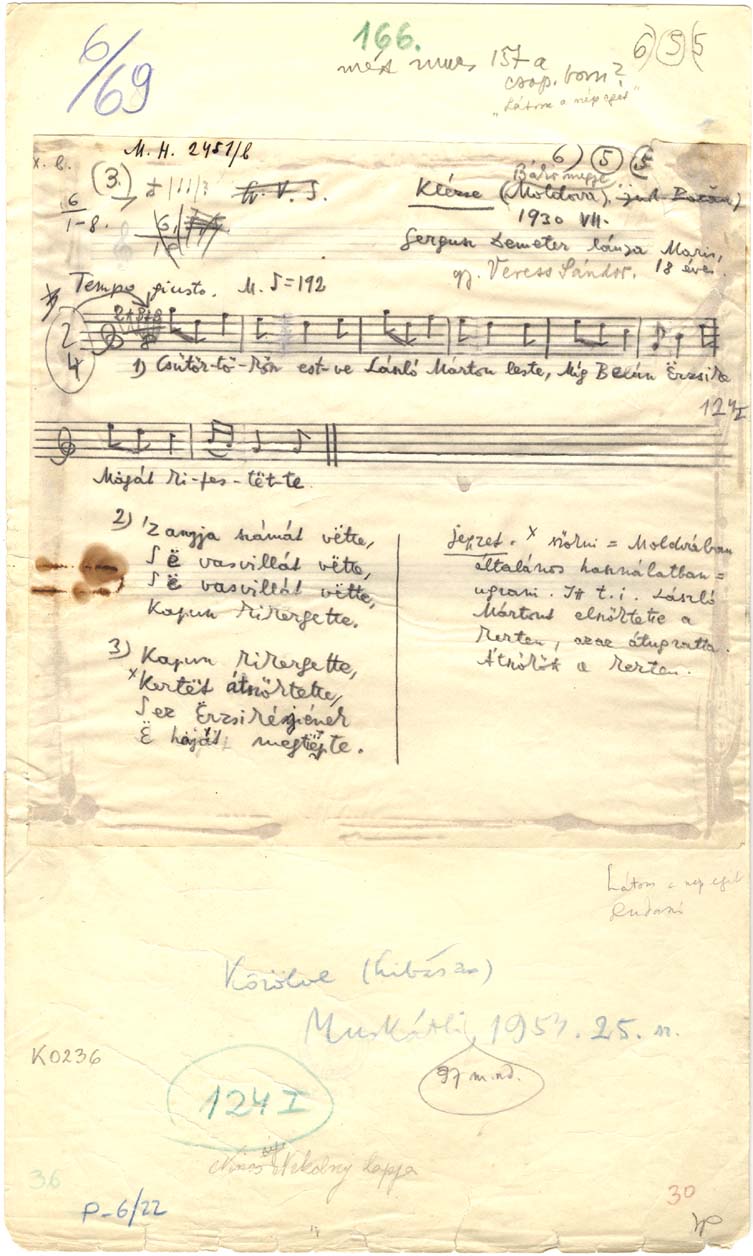 6/69
166.
6) 5 (5
még nincs 157 a
csop. ban?
"Látom a nép egét"
M. H. 2451/b
x. b.
(3.)
6) (5) (5
6
1-8.
Klézse (Moldova),
1930 VII.
Gergus Demeter lánya Maris,
18 éves.
gy. Veress Sándor.
Tempo giusto. M. ♪=192
2
4
1) Csütör-tö-kön est-ve László Márton leste, Míg Belán Ërzsike
124 I
Magát ki-fes-tët-te
2) 'Z anyja számát vëtte,
S ë vasvillát vëtte,
S ë vasvillát vëtte,
Kapun kikergette.
3) Kapun kikergette,
x Kertët átszöktette,
S ez Ërzsikéjének
Ë haját megtépte.
Jegyzet. x szökni = Moldvában
általános használatban =
ugrani. Itt t.i. László
Mártont elszöktette a
kerten, azaz átugratta.
Átszökök a kerten.
Látom a nép egét
Közölve (hibásan)
Muskátli, 1954. 25. sz.
97 m.nd.
K0236
124 I
lapja
36
P-6/22
30